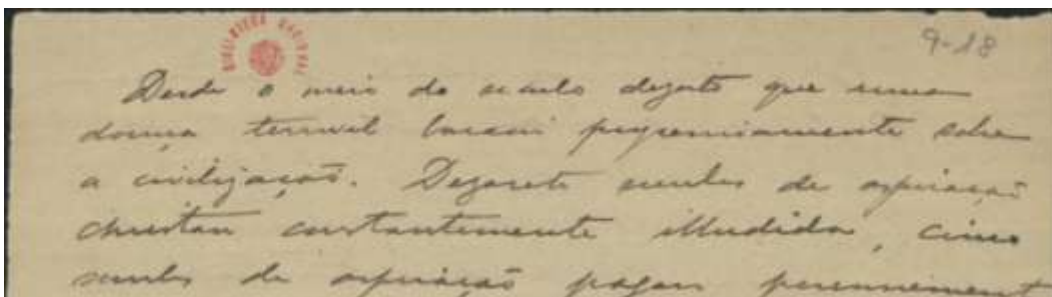 BIBLIOTECA NACIONAL
9-18
Desde o meio do seculo dezoito que uma
doença terrivel baixou progressivamente sobre
a civilização. Dezasete seculos de aspiração
christan constantemente illudida, cinco
seculos de aspiração pagan perennement